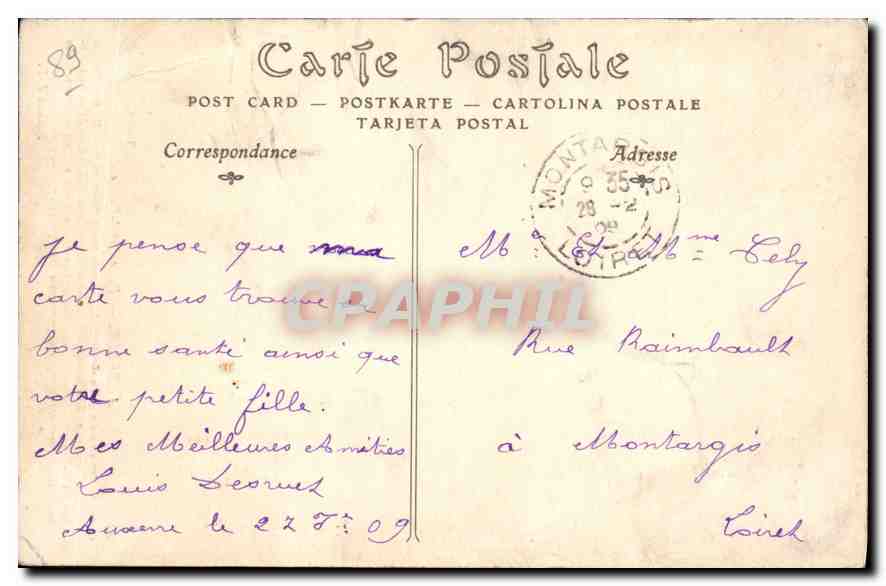 89
Carte Postale
POST CARD — POSTKARTE — CARTOLINA POSTALE
TARJETA POSTAL
Correspondance
Adresse
MONTARGIS
9 35
28 - 2
09
LOIRET
CPAPHIL
Je pense que ma
carte vous trouve en
bonne santé ainsi que
votre petite fille.
Mes Meilleures Amitiés
Louis
Auxerre le 27 Fe 09
Mr Et Mme Tely
Rue Raimbault
à Montargis
Loiret